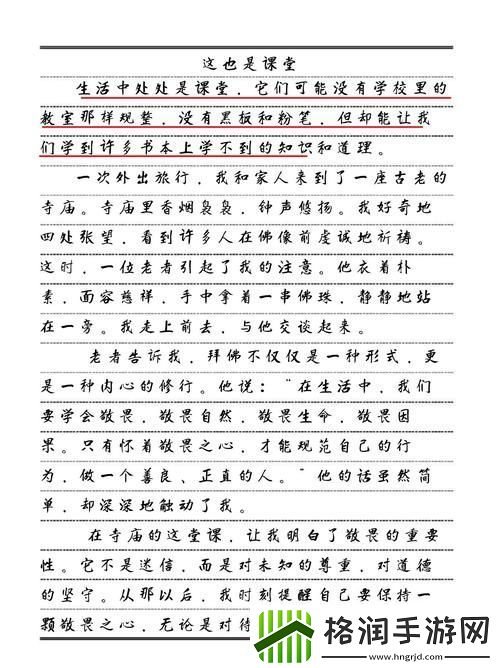 这也是课堂
生活中处处是课堂，它们可能没有学校里的
教室那样规整，没有黑板和粉笔，但却能让我
们学到许多书本上学不到的知识和道理。
一次外出旅行，我和家人来到了一座古老的
寺庙。寺庙里香烟袅袅，钟声悠扬。我好奇地
四处张望，看到许多人在佛像前虔诚地祈祷。
这时，一位老者引起了我的注意。他衣着朴
素，面容慈祥，手中拿着一串佛珠，静静地站
在一旁。我走上前去，与他交谈起来。
老者告诉我，拜佛不仅仅是一种形式，更
是一种内心的修行。他说：“在生活中，我们
要学会敬畏，敬畏自然，敬畏生命，敬畏因
果。只有怀着敬畏之心，才能规范自己的行
为，做一个善良、正直的人。”他的话虽然简
单，却深深地触动了我。
在寺庙的这堂课，让我明白了敬畏的重要
性。它不是迷信，而是对未知的尊重，对道德
的坚守。从那以后，我时刻提醒自己要保持一
颗敬畏之心，无论是对待
格润手游网
www.hngrjd.com